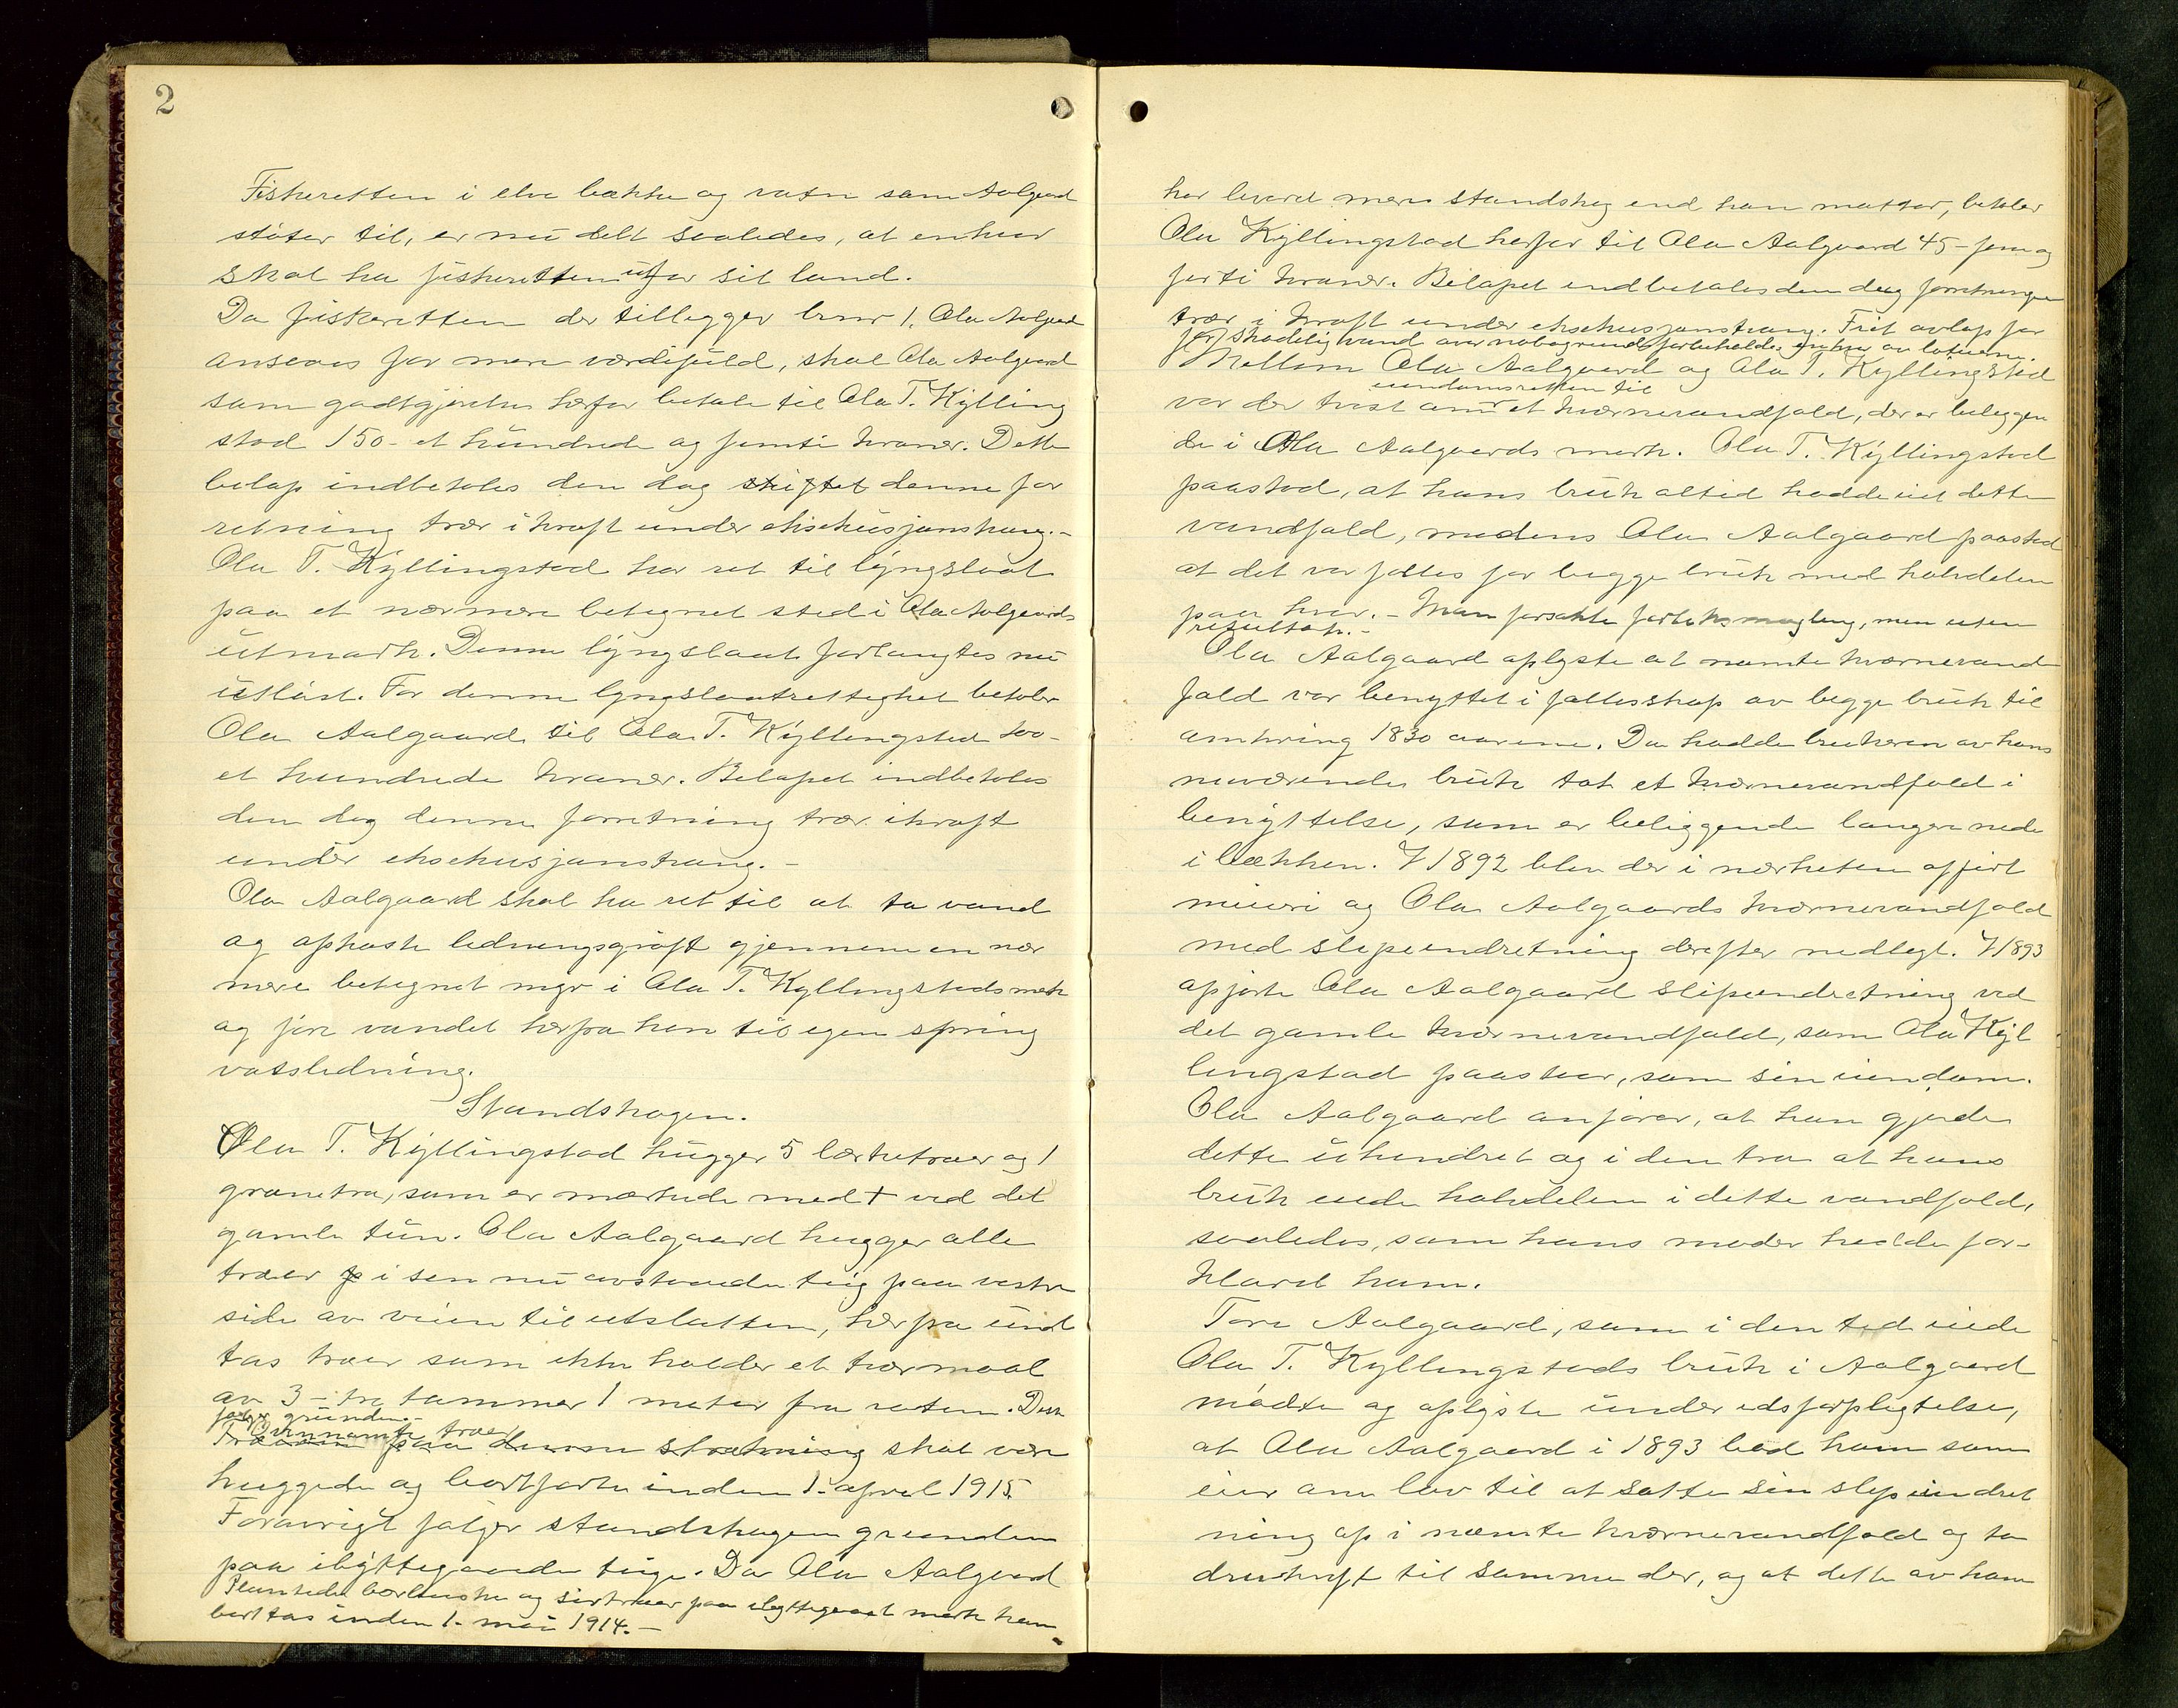 2
Fiskeretten i elve bække og vatn som Aalgaard
støter til, er nu delt saaledes, at enhver
skal ha fiskeretten utfor sit land.
Da fiskeretten der tillegges bruk 1. Ola Aalgaard
ansees for mere værdifuld, skal Ola Aalgaard
som godtgjørelse herfor betale til Ola T. Kylling
stad 150- et hundrede og femti kroner. Dette
beløp indbetales den dag skiftet denne for
retning trær i kraft under eksekusjonstvang.-
Ola T. Kyllingstad har ret til lyngslaat
paa et nærmere betegnet sted i Ola Aalgaards
utmark. Denne lyngslaat forlangtes nu
utløst. For denne lyngslaatrettighet betaler
Ola Aalgaard til Ola T. Kyllingstad 100-
et hundrede kroner. Beløpet indbetales
den dag denne forretning trær ikraft
under eksekusjonstvang.-
Ola Aalgaard skal ha ret til at ta vand
og opkaste ledningsgrøft gjennem en nær
mere betegnet myr i Ola T. Kyllingstads mark
og føre vandet herfra hen til egen spring
vatsledning.
Standskogen.
Ola T. Kyllingstad hugger 5 lærketræer og 1
granetræ, som er mærkede med + ved det
gamle tun. Ola Aalgaard hugger alle
træer i sen nu avstaaede teig paa vestre
side av veien til utslaatten, herfra und
tas træer som ikke holder et tvermaal
av 3- tre tommer 1 meter fra roten. Disse
følger grunden.-
Ovennævnte træer
Træerne paa denne strekning skal være
huggede og bortførte inden 1. april 1915.
Forøvrigt følger standskogen grunden
paa ibyttegaaede teige. Da Ola Aalgaard
Plantede bærbuske og sirtræer paa ibyttegaaet mark kan
borttas inden 1. mai 1914.-
har leveret mere standskog end han mottar, betaler
Ola Kyllingstad herfor til Ola Aalgaard 45- fem og
førti kroner. Beløpet indbetales den dag forretningen
trær i kraft under eksekusjonstvang. Frit avløp for
for skadelig vand over nabogrund forbeholdes enhver av lotterne.
Mellem Ola Aalgaard og Ola T. Kyllingstad
eiendomsretten til
var der tvist om et kværnevandfald, der er beliggen
de i Ola Aalgaards mark. Ola T. Kyllingstad
paastod, at hans bruk altid hadde eiet dette
vandfald, medens Ola Aalgaard paastod
at det var fælles for begge bruk med halvdelen
paa hver.- Man forsøkte forliksmegling, men uten
resultat.-
Ola Aalgaard oplyste at nævnte kværnevand
fald var benyttet i fællesskap av begge bruk til
omkring 1830 aarene. Da hadde brukeren av hans
nuværende bruk tat et kværnevandfald i
benyttelse, som er beliggende længer nede
i bækken. I 1892 blev der i nærheten opført
meieri og Ola Aalgaards kværnevandfald
med slipeindretning derefter nedlagt. I 1893
opførte Ola Aalgaard slipeindretning ved
det gamle kværnevandfald, som Ola Kyl
lingstad paastaar, som sin eiendom.
Ola Aalgaard anfører, at han gjorde
dette uhindret og i den tro at hans
bruk eide halvdelen i dette vandfald,
saaledes, som hans moder hadde for-
klaret ham.
Tore Aalgaard, som i den tid eiede
Ola T. Kyllingstads bruk i Aalgaard
mødte og oplyste under edsforpligtelse,
at Ola Aalgaard i 1893 bad ham som
eier om lov til at sætte sin slipeindret
ning op i nævnte kværnevandfald og ta
drivkraft til samme der, og at dette av ham